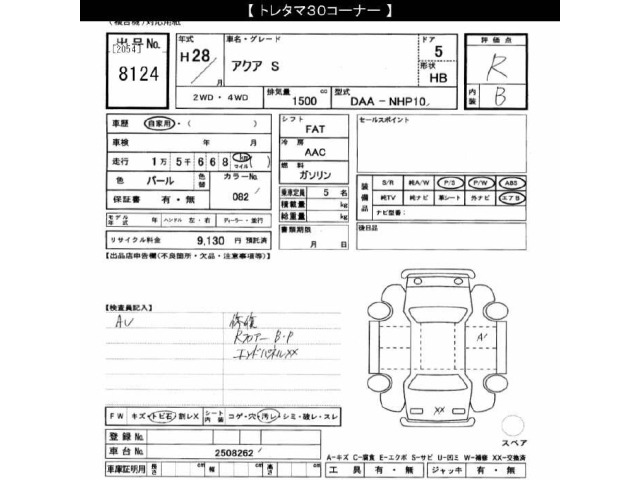 【 トレタマ30コーナー 】
(複合機)対応用紙
出品No.
[2054]
8124
年式
H28
月
車名・グレード
アクア S
ドア
5
形状
HB
評価点
R
内装
B
2WD・4WD
排気量
1500 cc
型式
DAA－NHP10
車歴 自家用・( )
車検 年 月
走行 1万5千668 km マイル
色 パール 色替 カラーNo. 082
保証書 有・無
モデル年式 年 ハンドル 左・右 ディーラー・並行
リサイクル料金 9,130 円 預託済
シフト
FAT
冷房
AAC
燃料
ガソリン
乗車定員 5 名
積載量 kg
総重量 kg
書類期限
月 日
セールスポイント
装備品
S/R 純A/W P/S P/W ABS
純TV 純ナビ 革シート 外ナビ エアB
ナビ型番:
後日品
【出品店申告欄(不良箇所・欠品・注意事項等)】
【検査員記入】
AU
修復
Rフロアー B・P
エンドパネルXX
A1
XX
FW キズ・トビ石・割レX シート内装 コゲ・穴・汚レ・シミ・破レ・スレ
登録No.
車台No. 2508262
車庫証明用 長さ cm 幅 cm 高さ cm
スペア
A－キズ C－腐食 E－エクボ S－サビ U－凹ミ W－補修 XX－交換済
工具 有・無 ジャッキ 有・無